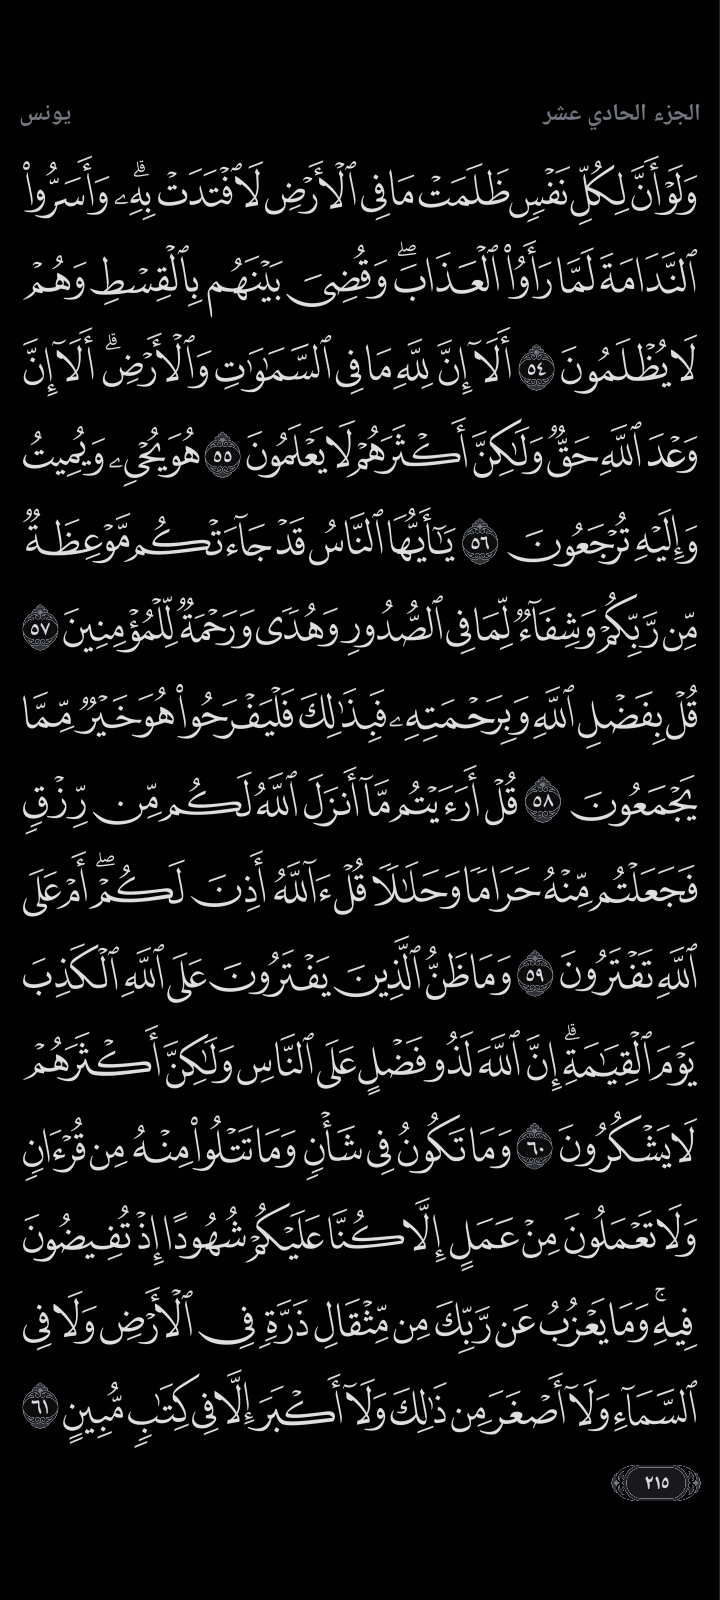 الجزء الحادي عشر
يونس
وَلَوۡ أَنَّ لِكُلِّ نَفۡسٖ ظَلَمَتۡ مَا فِي ٱلۡأَرۡضِ لَٱفۡتَدَتۡ بِهِۦۗ وَأَسَرُّواْ
ٱلنَّدَامَةَ لَمَّا رَأَوُاْ ٱلۡعَذَابَۖ وَقُضِيَ بَيۡنَهُم بِٱلۡقِسۡطِ وَهُمۡ
لَا يُظۡلَمُونَ ٥٤ أَلَآ إِنَّ لِلَّهِ مَا فِي ٱلسَّمَٰوَٰتِ وَٱلۡأَرۡضِۗ أَلَآ إِنَّ
وَعۡدَ ٱللَّهِ حَقّٞ وَلَٰكِنَّ أَكۡثَرَهُمۡ لَا يَعۡلَمُونَ ٥٥ هُوَ يُحۡيِۦ وَيُمِيتُ
وَإِلَيۡهِ تُرۡجَعُونَ ٥٦ يَٰٓأَيُّهَا ٱلنَّاسُ قَدۡ جَآءَتۡكُم مَّوۡعِظَةٞ
مِّن رَّبِّكُمۡ وَشِفَآءٞ لِّمَا فِي ٱلصُّدُورِ وَهُدٗى وَرَحۡمَةٞ لِّلۡمُؤۡمِنِينَ ٥٧
قُلۡ بِفَضۡلِ ٱللَّهِ وَبِرَحۡمَتِهِۦ فَبِذَٰلِكَ فَلۡيَفۡرَحُواْ هُوَ خَيۡرٞ مِّمَّا
يَجۡمَعُونَ ٥٨ قُلۡ أَرَءَيۡتُم مَّآ أَنزَلَ ٱللَّهُ لَكُم مِّن رِّزۡقٖ
فَجَعَلۡتُم مِّنۡهُ حَرَامٗا وَحَلَٰلٗا قُلۡ ءَآللَّهُ أَذِنَ لَكُمۡۖ أَمۡ عَلَى
ٱللَّهِ تَفۡتَرُونَ ٥٩ وَمَا ظَنُّ ٱلَّذِينَ يَفۡتَرُونَ عَلَى ٱللَّهِ ٱلۡكَذِبَ
يَوۡمَ ٱلۡقِيَٰمَةِۗ إِنَّ ٱللَّهَ لَذُو فَضۡلٍ عَلَى ٱلنَّاسِ وَلَٰكِنَّ أَكۡثَرَهُمۡ
لَا يَشۡكُرُونَ ٦٠ وَمَا تَكُونُ فِي شَأۡنٖ وَمَا تَتۡلُواْ مِنۡهُ مِن قُرۡءَانٖ
وَلَا تَعۡمَلُونَ مِنۡ عَمَلٍ إِلَّا كُنَّا عَلَيۡكُمۡ شُهُودًا إِذۡ تُفِيضُونَ
فِيهِۚ وَمَا يَعۡزُبُ عَن رَّبِّكَ مِن مِّثۡقَالِ ذَرَّةٖ فِي ٱلۡأَرۡضِ وَلَا فِي
ٱلسَّمَآءِ وَلَآ أَصۡغَرَ مِن ذَٰلِكَ وَلَآ أَكۡبَرَ إِلَّا فِي كِتَٰبٖ مُّبِينٍ ٦١
٢١٥